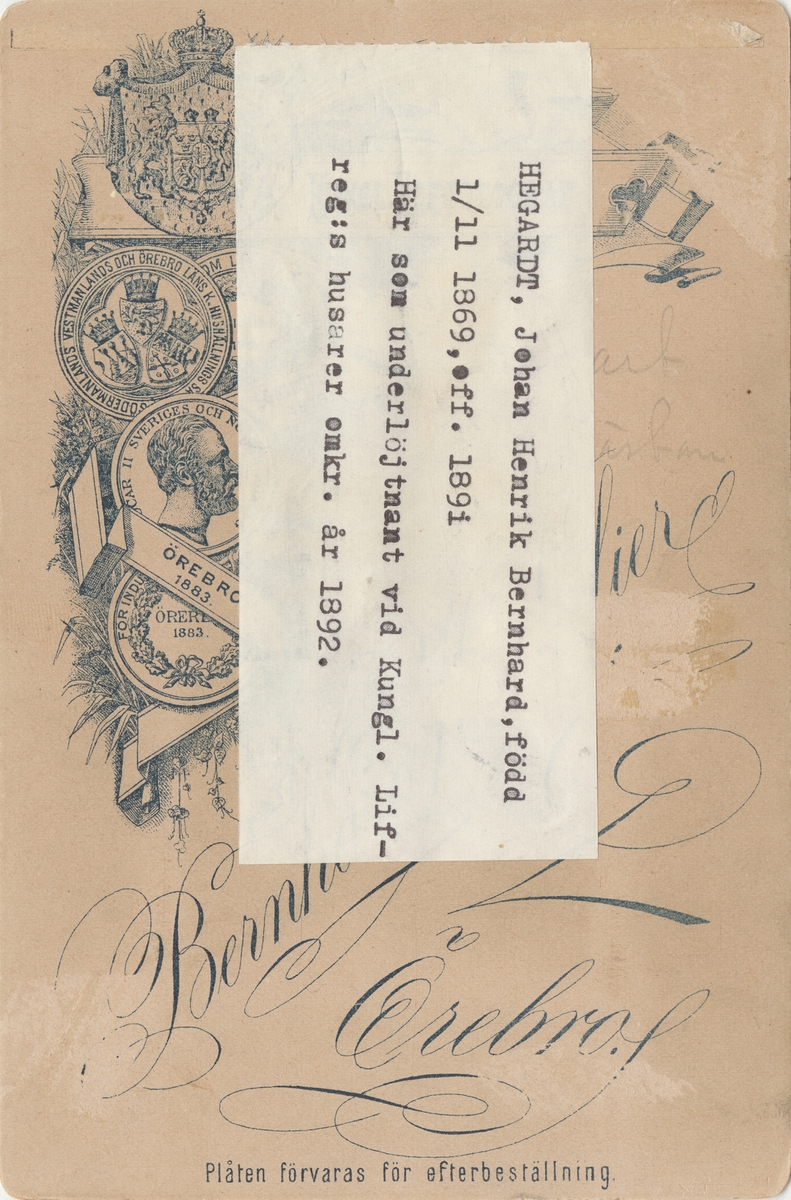 HEGARDT, Johan Henrik Bernhard,född
1/11 1869,off. 189i
Här som underlöjtnant vid Kungl. Lif-
reg:s husarer omkr. år 1892.
SÖDERMANLANDS VESTMANLANDS OCH ÖREBRO LÄNS K. HUSHÅLLNINGS
II SVERIGES OCH
ÖREBRO
1883.
FÖR
1883.
Örebro.
Plåten förvaras för efterbeställning.